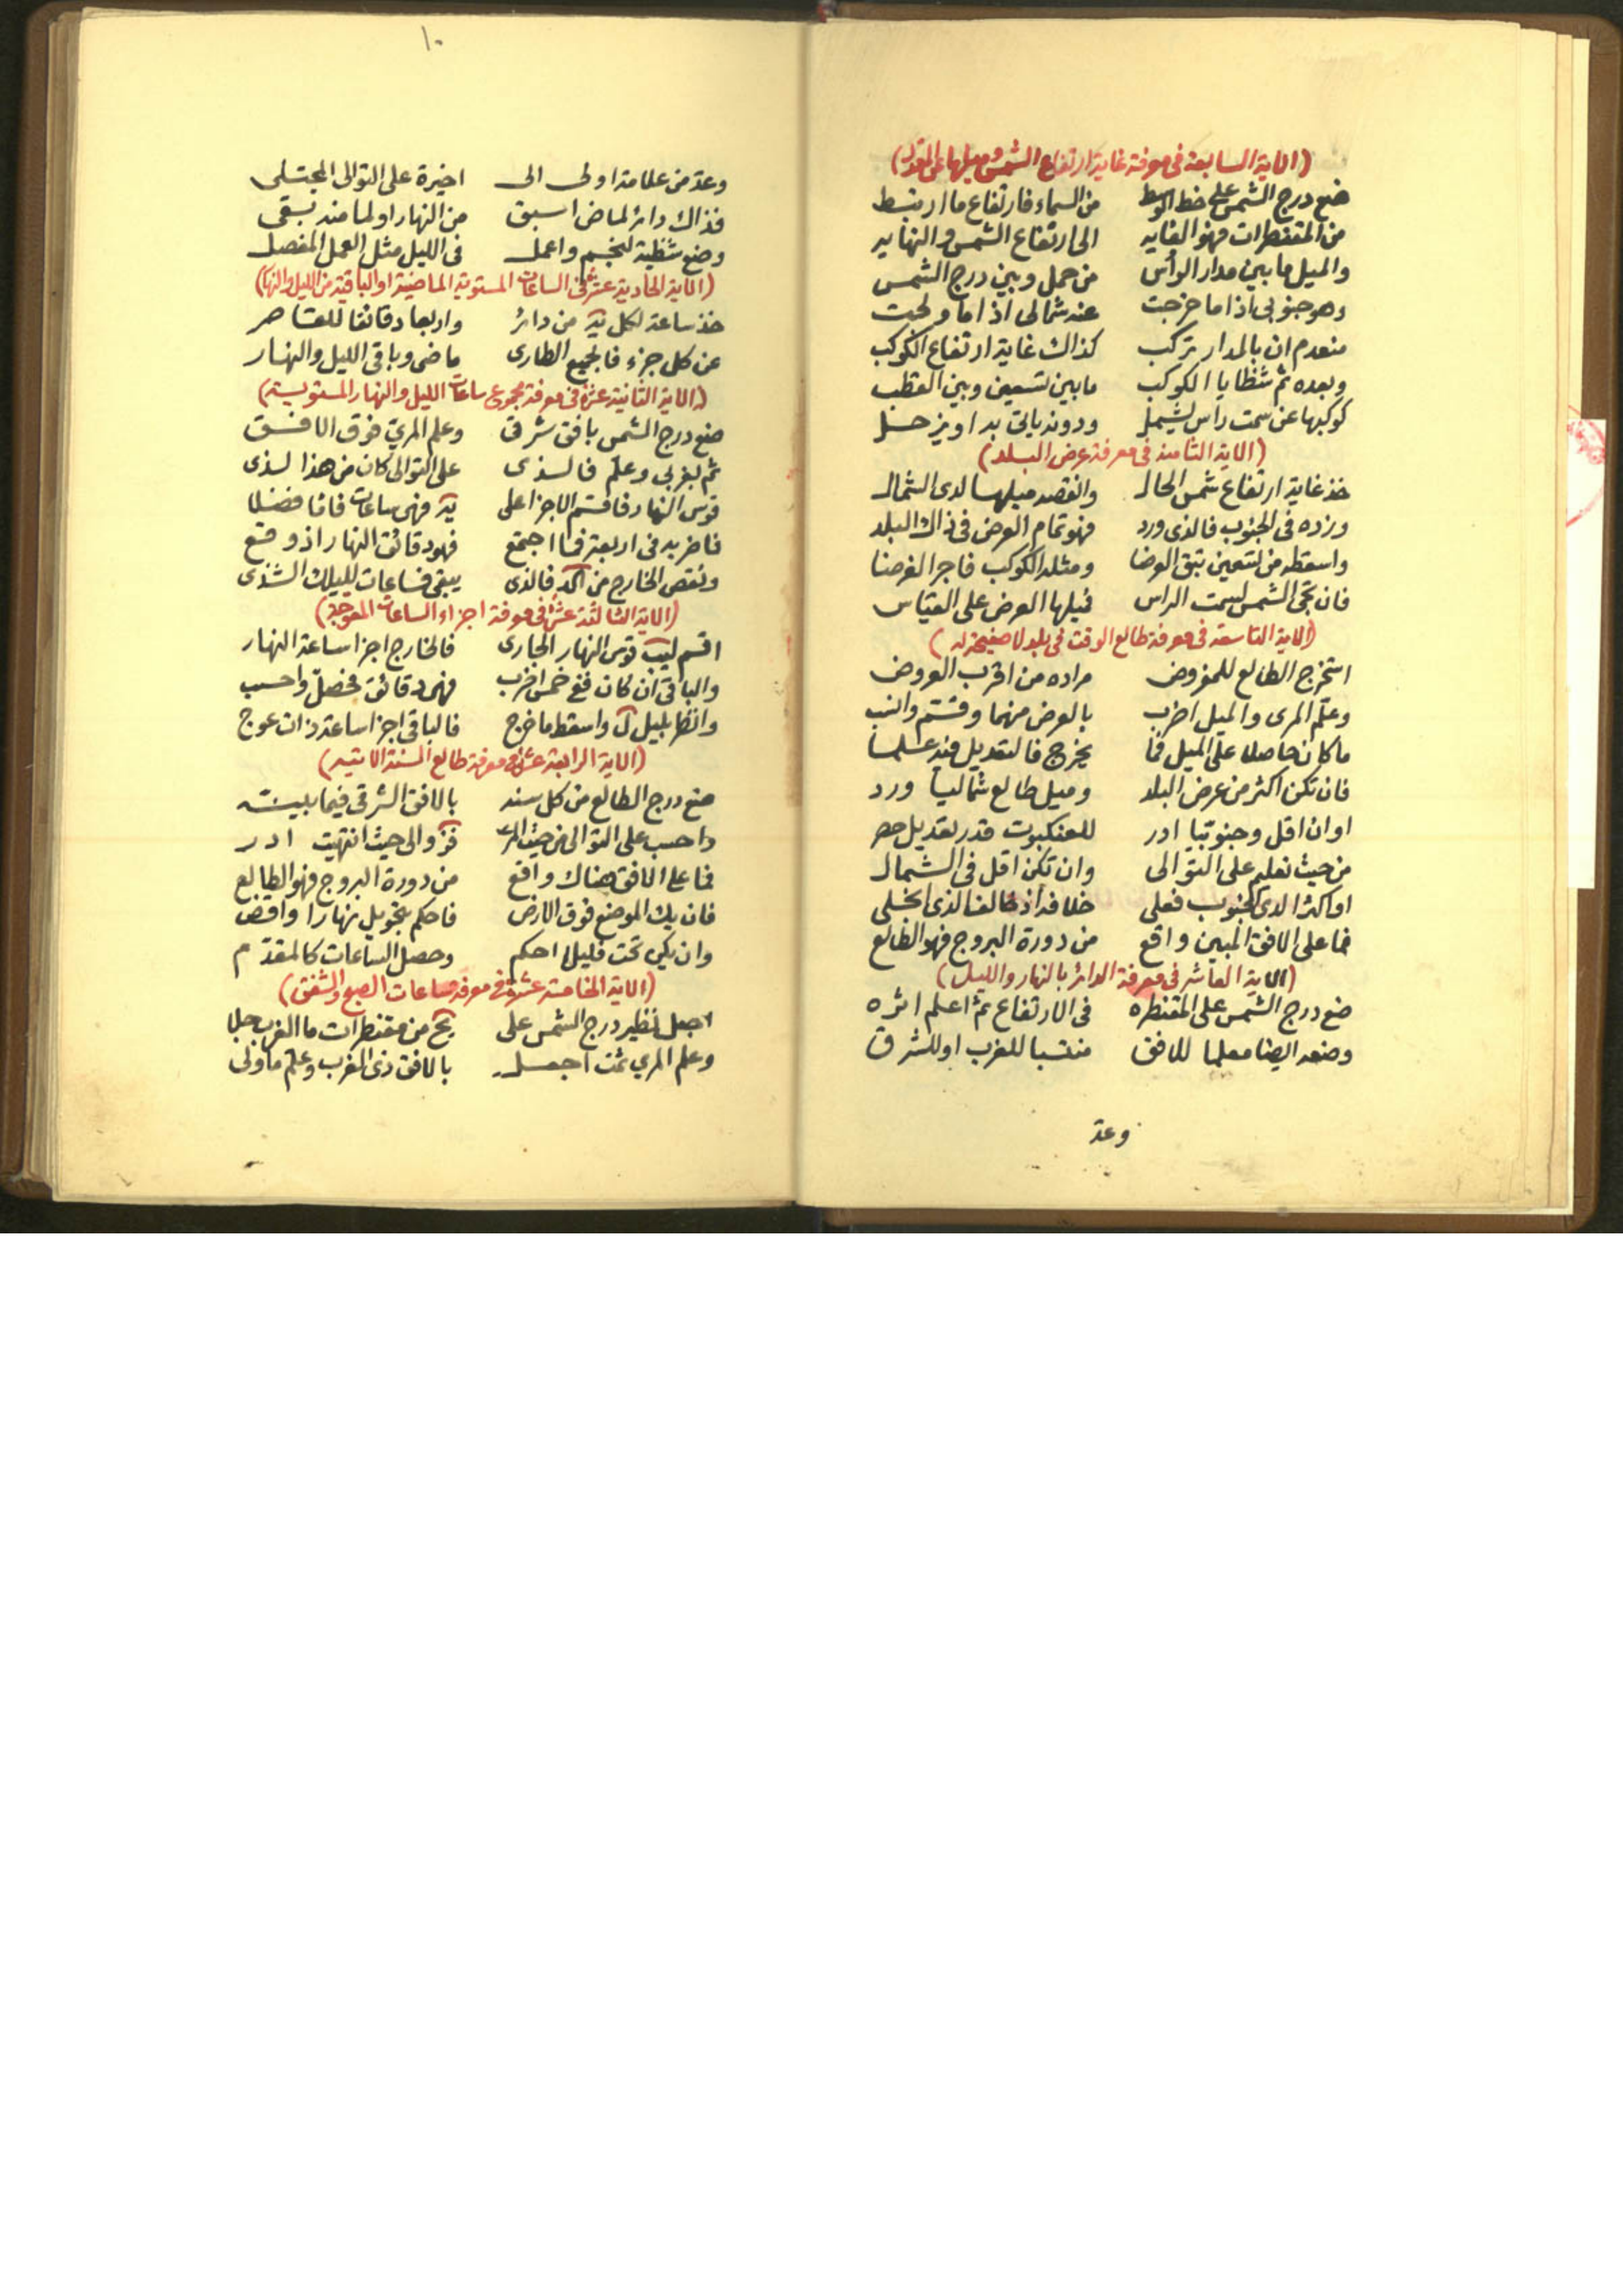 (الاية السابعة فى معرفة غاية ارتفاع الشمس وميلها عن المعدل)
ضع درج الشمس على خط الوسط من السماء فارتفاع ما ارتبط
من المقنطرات فهو الغايه الى ارتفاع الشمس والنهايه
والميل ما بين مدار الرأس من حمل وبين درج الشمس
وهو جنوبى اذا ما خرجت عنه شمالى اذا ما ولجت
منعدم ان بالمدار تركب كذاك غاية ارتفاع الكوكب
وبعده ثم شظايا الكوكب ما بين تسعين وبين القطب
كوكبها عن سمت راس يشمل ودونه ياتى بدا وينزحل
(الاية الثامنه فى معرفة عرض البلد)
خذ غاية ارتفاع شمس الحال وانقصه ميلها لدى الشمال
وزده فى الجنوب فالذى ورد فهو تمام العرض فى ذاك البلد
واسقطه من تسعين تبق العرضا ومثله الكوكب فاجر الفرضا
فان تجى الشمس لسمت الراس فميلها العرض على القياس
(الاية التاسعة فى معرفة طالع الوقت فى بلد لا صفيحة له)
استخرج الطالع للمفروض مراده من اقرب العروض
وعلم المرى والميل اضرب بالعرض منهما وقسم وانسب
ما كان حاصلا على الميل فما يخرج فالتعديل فيه علما
فان تكن اكثر من عرض البلد وميل طالع شماليا ورد
او ان اقل وجنوبيا ادر للعنكبوت قدر تعديل حصر
من حيث تعليم على التوالى وان تكن اقل فى الشمال
او اكثرا لدى الجنوب فعلى خلافه اذ خالفا لذى انجلى
فما على الافق المبين واقع من دورة البروج فهو الطالع
(الاية العاشر فى معرفة الدائر بالنهار والليل)
ضع درج الشمس على المقنطره فى الارتفاع ثم اعلم اثره
وضعه ايضا معلما للافق منتسبا للغرب او للشرق
وعد
١٠
وعد من علامة اولى الى اخيرة على التوالى المجتلى
فذاك دائر لماض اسبق من النهار او لما منه بقى
وضع شظية لنجم واعمل فى الليل مثل العمل المفصل
(الاية الحادية عشر فى الساعات المستوية الماضية او الباقية من الليل والنهار)
خذ ساعة لكل يه من دائر واربعا دقائقا للقاصر
عن كل جزء فالجميع الطارى ماضى وباقى الليل والنهار
(الاية الثانية عشرة فى معرفة مجموع ساعات الليل والنهار المستوية)
ضع درج الشمس بافق شرقى وعلم المرى فوق الافق
ثم لغربى وعلم فالذى على التوالى كان من هذا لذى
قوس النهار فاقسم الاجزا على يه فهى ساعات فاما فضلا
فاضربه فى اربعة فما اجتمع فهو دقائق النهار اذ وقع
وتقص الخارج من اكد فالذى يبقى فساعات لليلك الشذى
(الاية الثالثة عشر فى معرفة اجزاء الساعات المعوجة)
اقسم ليب قوس النهار الجارى فالخارج اجزا ساعة النهار
والباقى ان كان ففى خمس اضرب فهى دقائق فحصل واحسب
وانظر بليل ل واسقط ما خرج فالباقى اجزا ساعة ذات عوج
(الاية الرابعة عشر فى معرفة طالع السنة الاتيه)
ضع درج الطالع من كل سنه بالافق الشرقى فيما بينه
واحسب على التوالى من حيث المرى فز والى حيث انتهيت ادر
فما على الافق هناك واقع من دورة البروج فهو الطالع
فان يك الموضع فوق الارض فاحكم بتحويل نهارا واقض
وان يكن تحت فليلا احكم وحصل الساعات كالمقدم
(الاية الخامسة عشرة فى معرفة ساعات الصبح والشفق)
اجعل نظير درج الشمس على يح من مقنطرات ما الغرب جلا
وعلم المرى ثمت اجعل بالافق ذى الغرب وعلم ما ولى